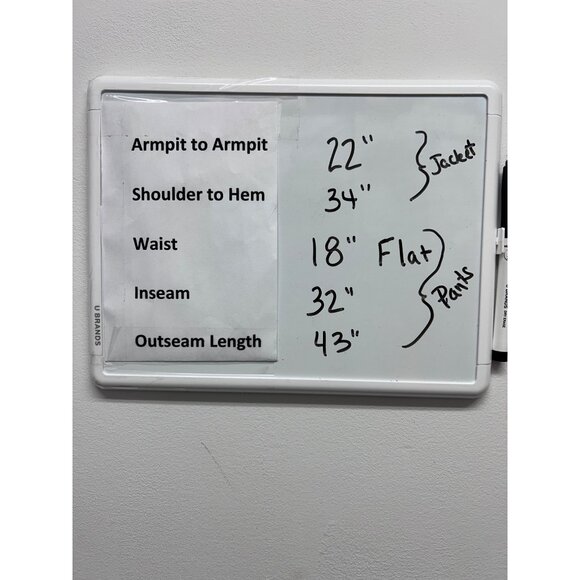 Armpit to Armpit 22" } Jacket
Shoulder to Hem 34"
Waist 18" Flat } Pants
Inseam 32"
Outseam Length 43"
U BRANDS